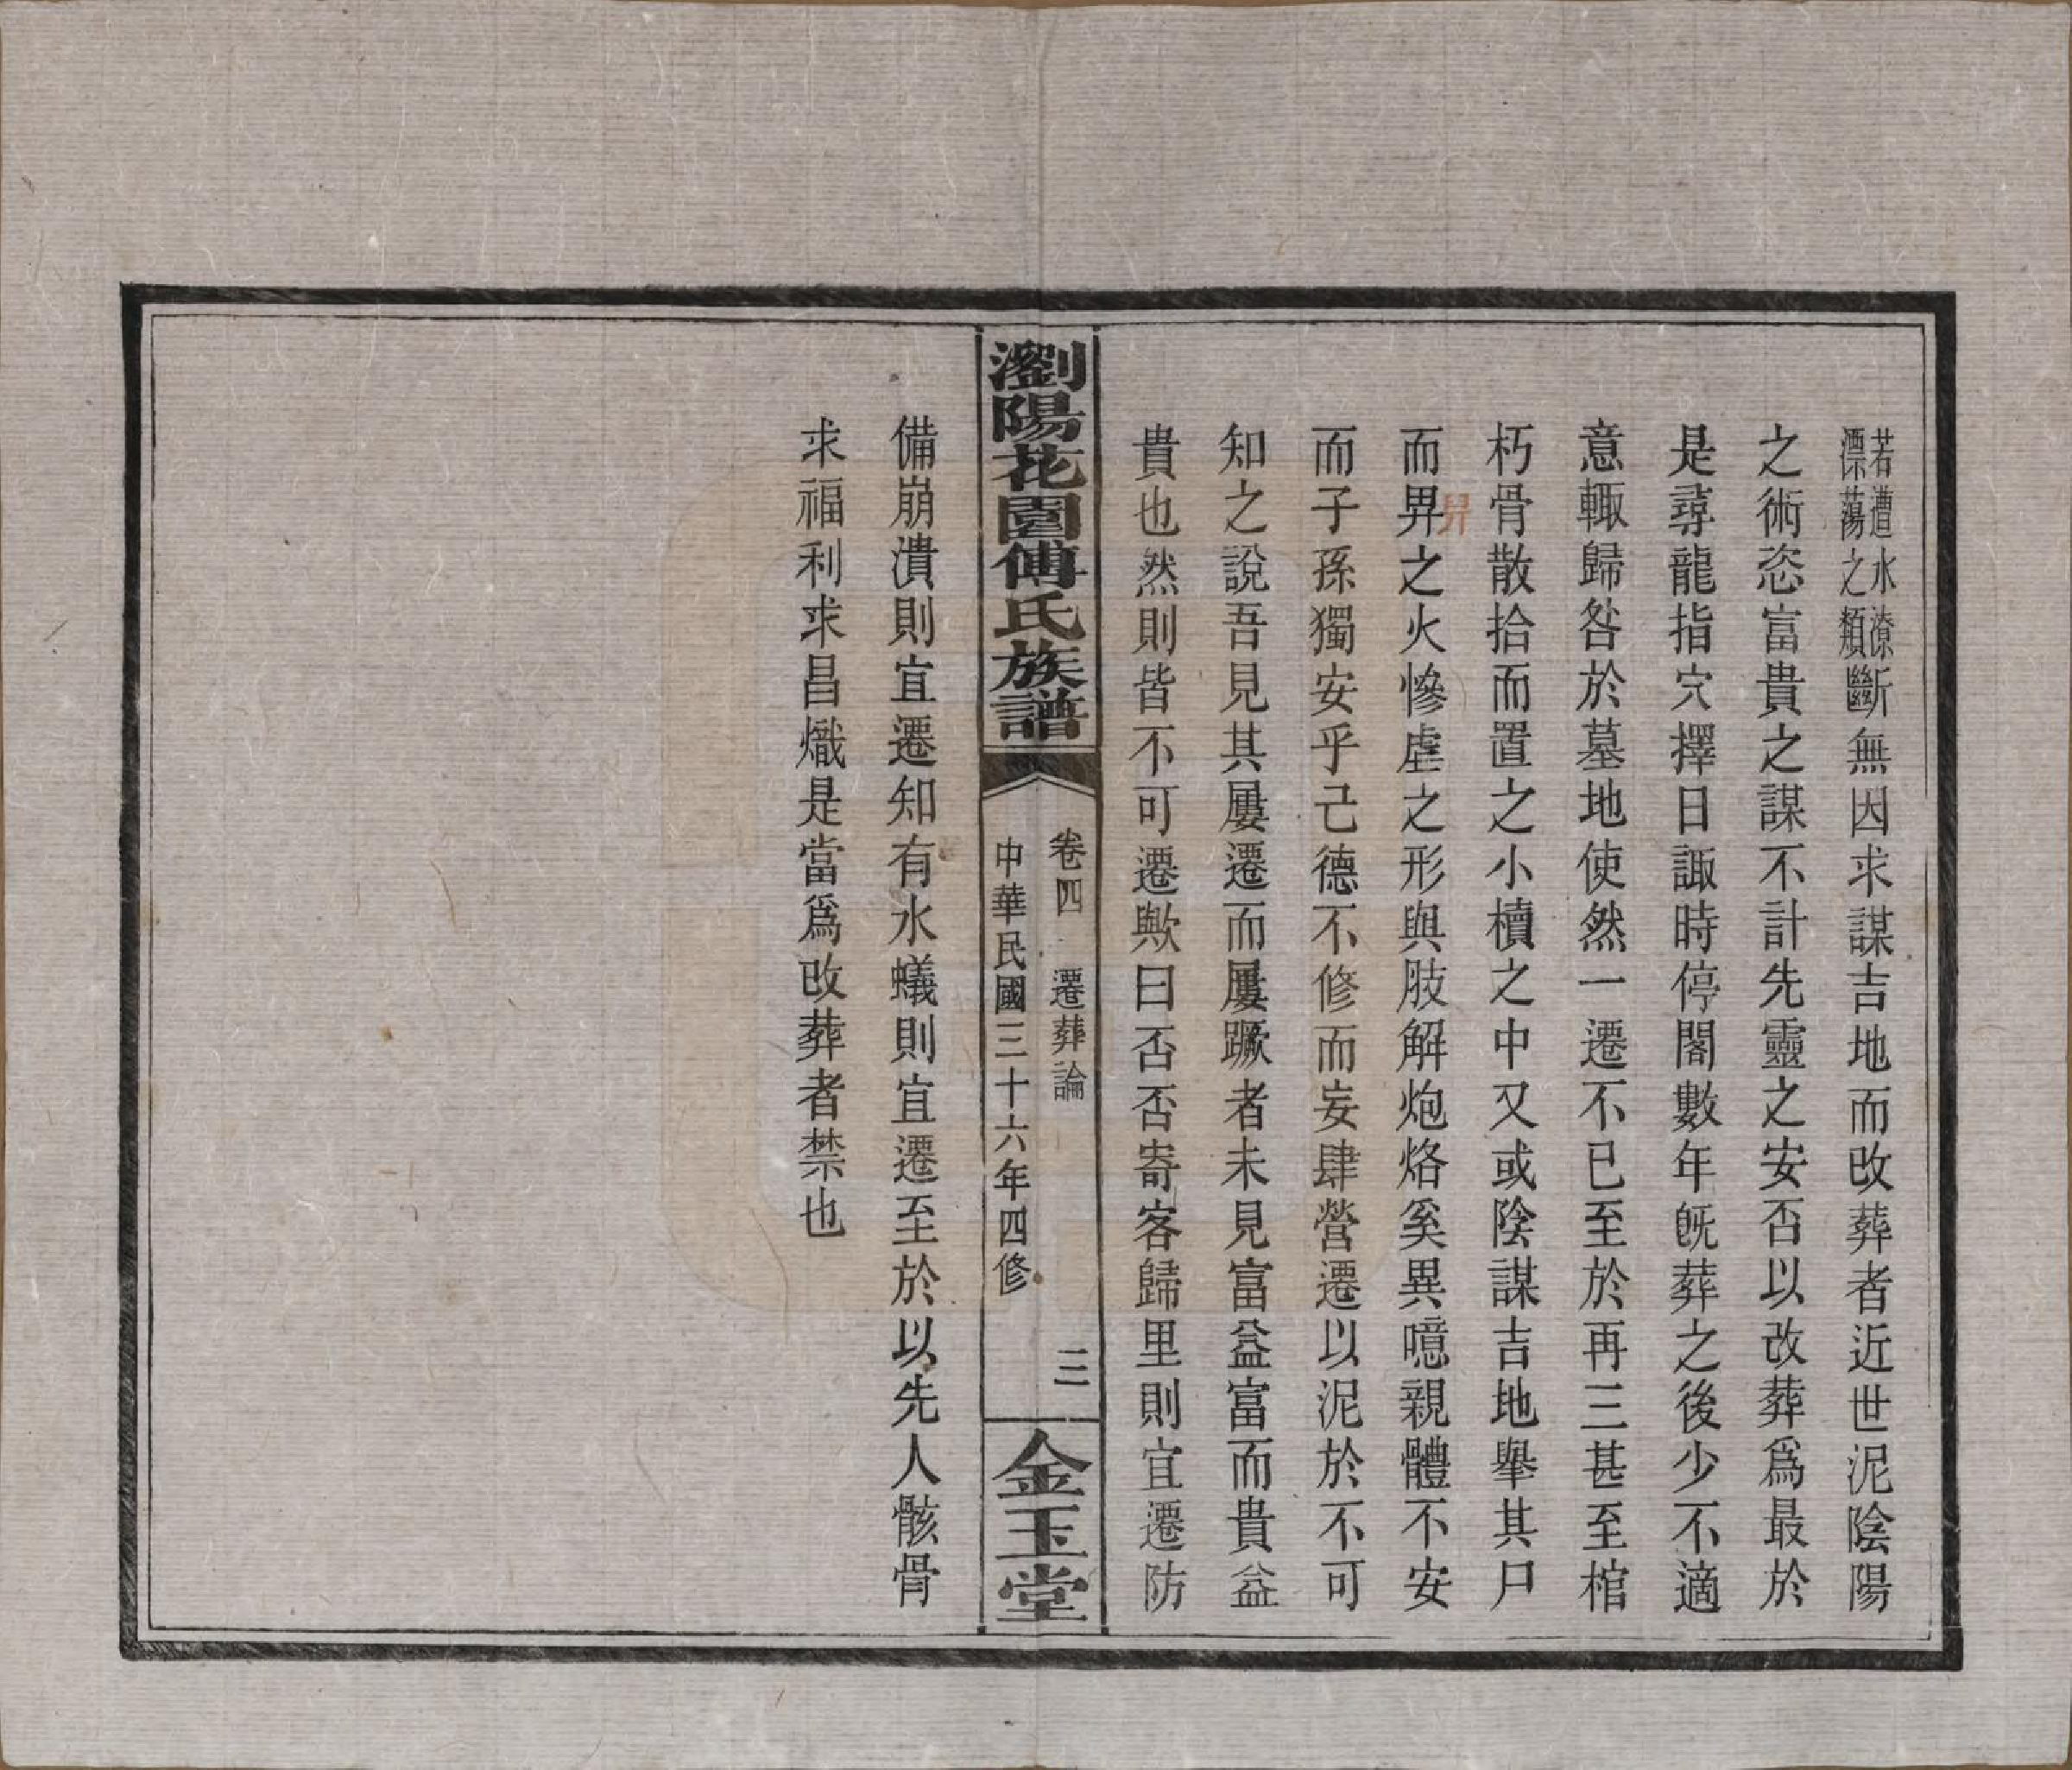 若遭水潦漂蕩之類斷無因求謀吉地而改葬者近世泥陰陽
之術恣富貴之謀不計先靈之安否以改葬爲最於
是尋龍指穴擇日諏時停閣數年旣葬之後少不適
意輒歸咎於墓地使然一遷不已至於再三甚至棺
朽骨散拾而置之小櫝之中又或陰謀吉地舉其尸
而畀之火慘虐之形與肢解炮烙奚異噫親體不安
而子孫獨安乎己德不修而妄肆營遷以泥於不可
知之說吾見其屢遷而屢蹶者未見富益富而貴益
貴也然則皆不可遷歟曰否否寄客歸里則宜遷防
瀏陽花園傅氏族譜
卷四 遷葬論 三
中華民國三十六年四修
金玉堂
備崩潰則宜遷知有水蟻則宜遷至於以先人骸骨
求福利求昌熾是當爲改葬者禁也